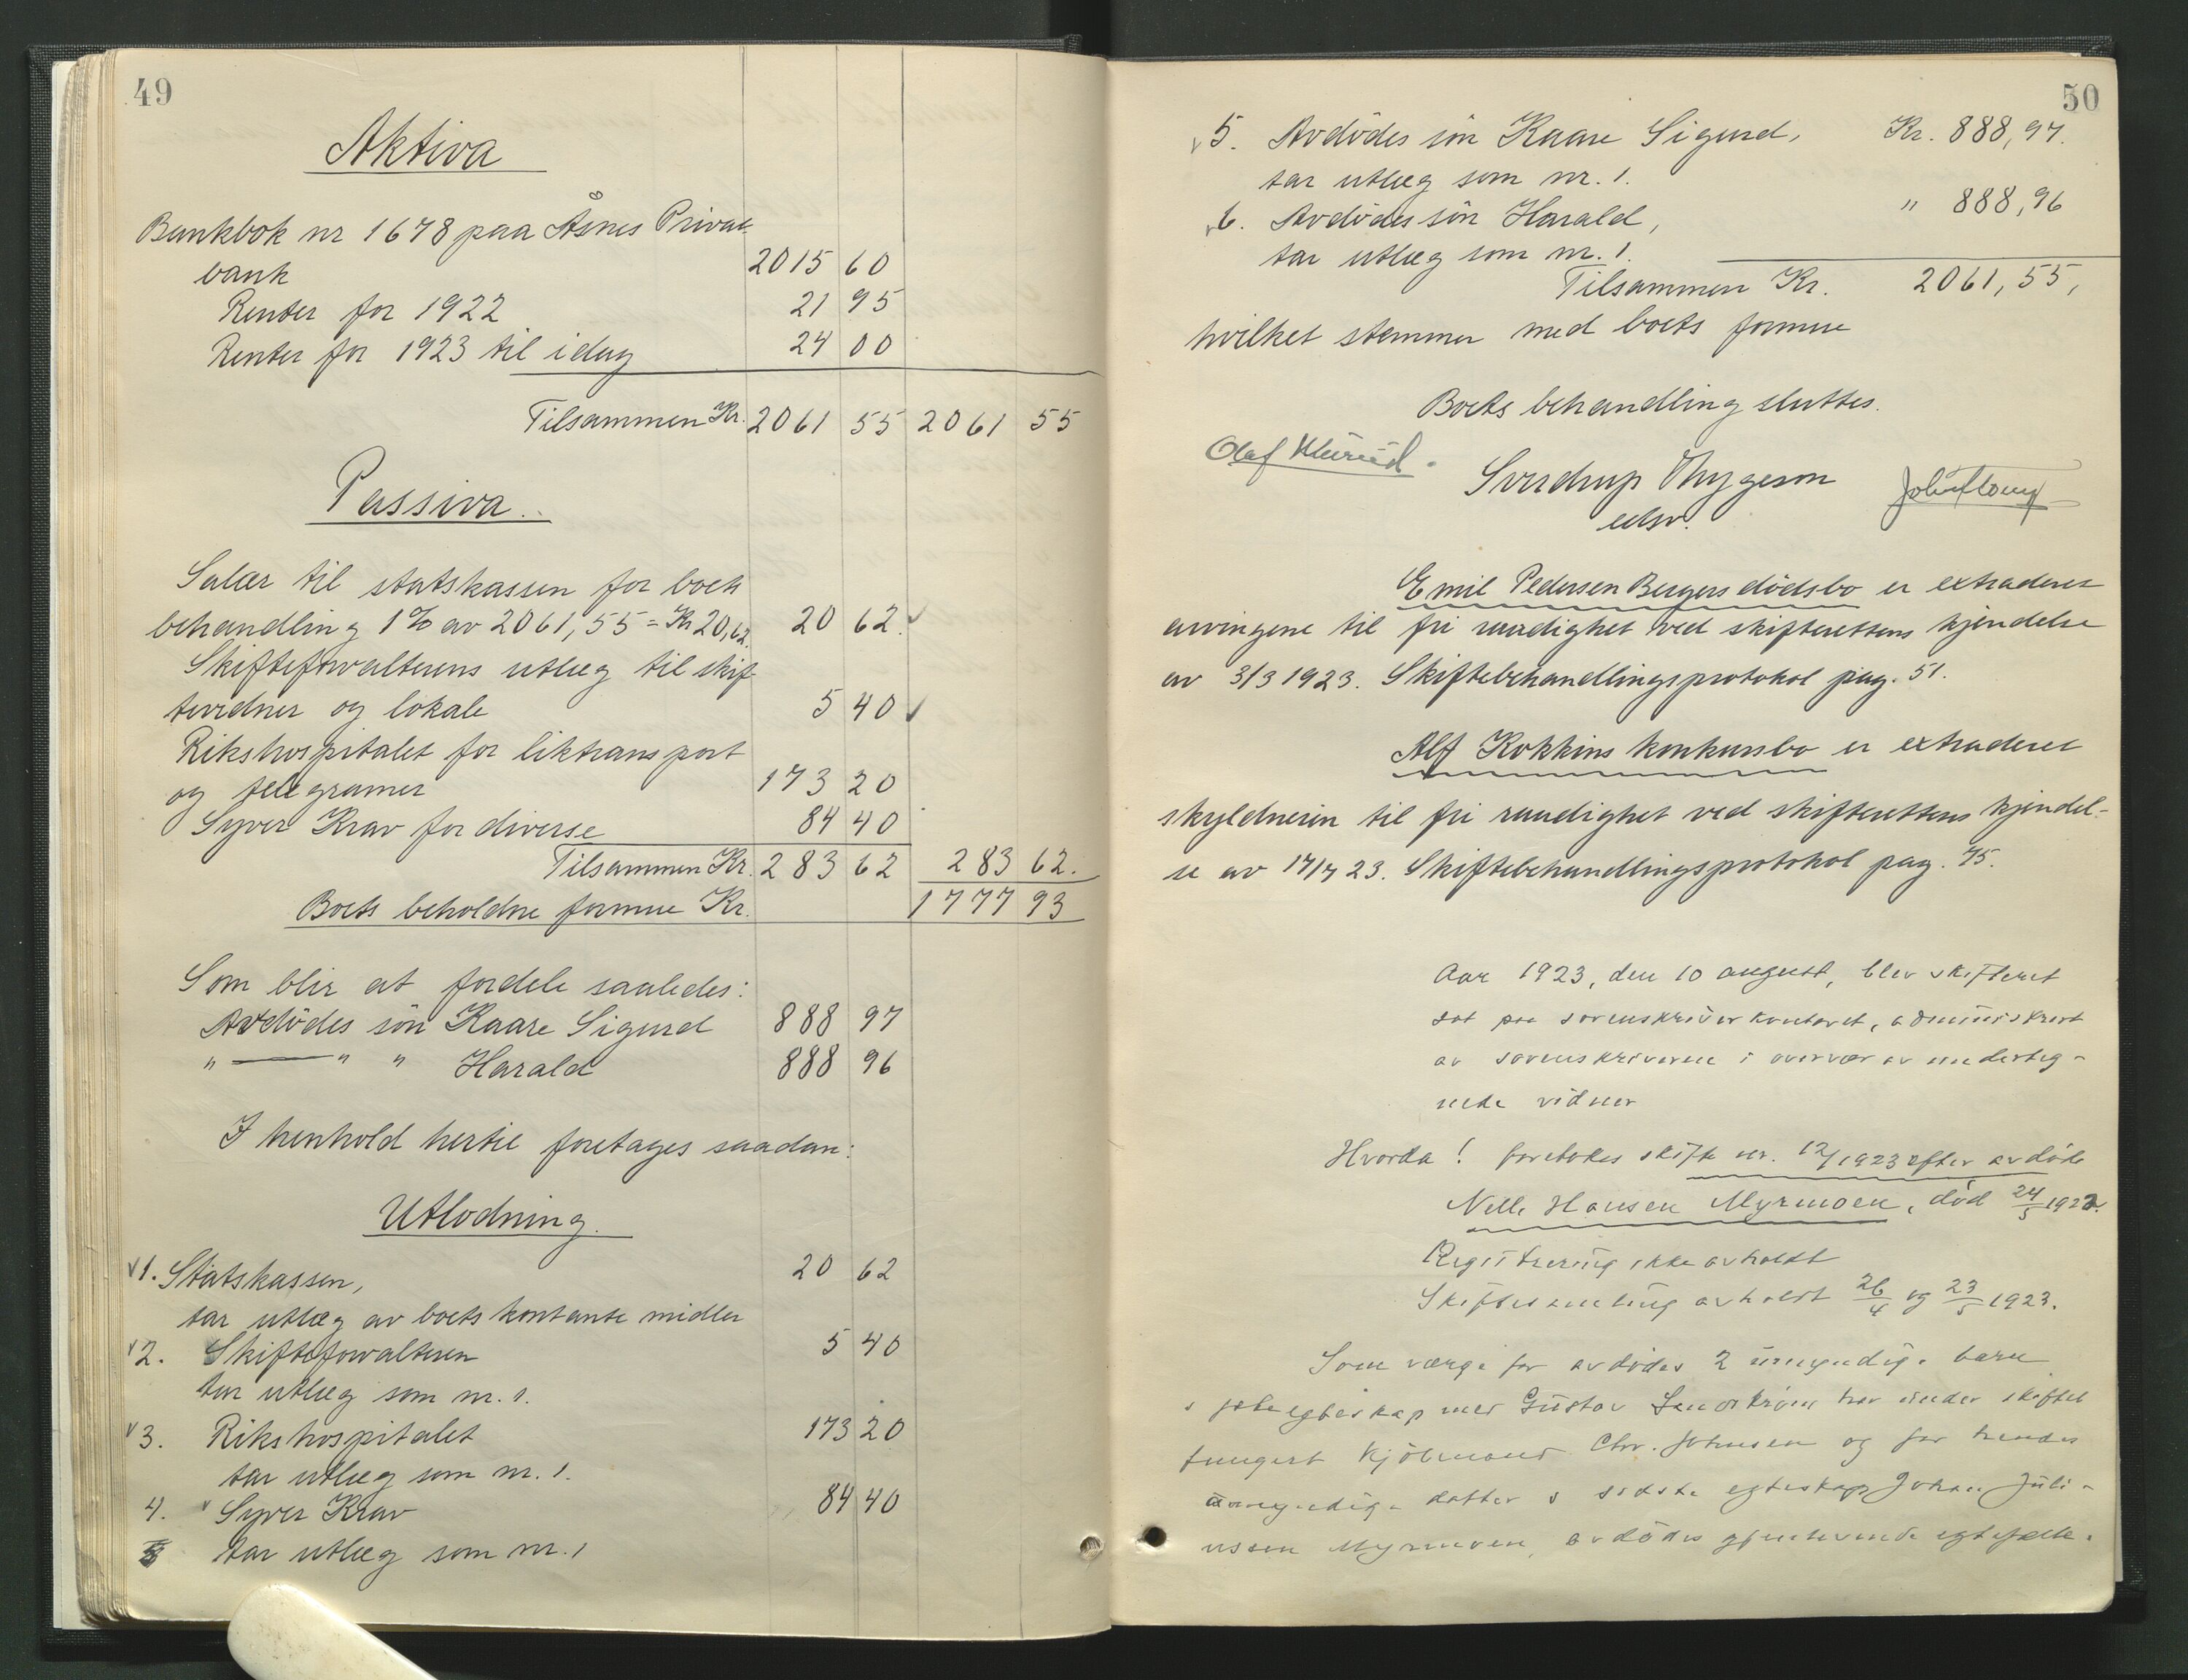 49
Aktiva
Bankbok nr 1678 paa Åsnes Privat-
bank 2015 60
Renter for 1922 21 95
Renter for 1923 til idag 24 00
Tilsammen Kr. 2061 55 2061 55
Passiva.
Salær til statskassen for boets
behandling 1% av 2061,55 = Kr 20,62. 20 62.
Skifteforvalterens utlæg til skif-
tevidner og lokale 5 40
Rikshospitalet for liktransport
og telegramer 173 20
Syver Krav for diverse 84 40
Tilsammen Kr. 283 62 283 62.
Boets beholdne formue Kr. 1777 93
Som blir at fordele saaledes:
Avdødes søn Kaare Sigurd 888 97
" — " " Harald 888 96
I henhold hertil foretages saadan:
Utlodning.
1. Statskassen, 20 62
tar utlæg av boets kontante midler
2. Skifteforvalteren 5 40
tar utlæg som nr. 1.
3. Rikshospitalet 173 20
tar utlæg som nr. 1.
4. Syver Krav 84 40
tar utlæg som nr. 1
50
5. Avdødes søn Kaare Sigurd, Kr. 888,97.
tar utlæg som nr. 1.
6. Avdødes søn Harald, " 888,96
tar utlæg som nr. 1.
Tilsammen Kr. 2061,55,
hvilket stemmer med boets formue
Boets behandling sluttes.
Olaf
Sverdrup Thygeson
edsv.
Emil Pedersen Bergers dødsbo er extraderet
arvingene til fri raadighet ved skifterettens kjendelse
av 3/3 1923. Skiftebehandlingsprotokol pag. 51.
Alf Kokkins konkursbo er extraderet
skyldneren til fri raadighet ved skifterettens kjendel-
se av 17/7 23. Skiftebehandlingsprotokol pag. 75.
Aar 1923, den 10 august, blev skifteret
sat paa sorenskriverkontoret, administrert
av sorenskriveren i overvær av underteg-
nede vidner
Hvorda! foretokes skifte nr. 12/1923 efter avdøde
Nelle Hansen Myrmoen, død 24/5 1922.
Registrering ikke avholdt
Skiftesamling avholdt 26/4 og 23/5 1923.
Som værge for avdødes 2 umyndige barn
i egteskap med Gustav har under skiftet
fungert Kjøbmand Chr. Johnsen og for hendes
umyndige datter i sidste egteskap Johan Juli-
ussen Myrmoen, avdødes gjenlevende egtefælle.